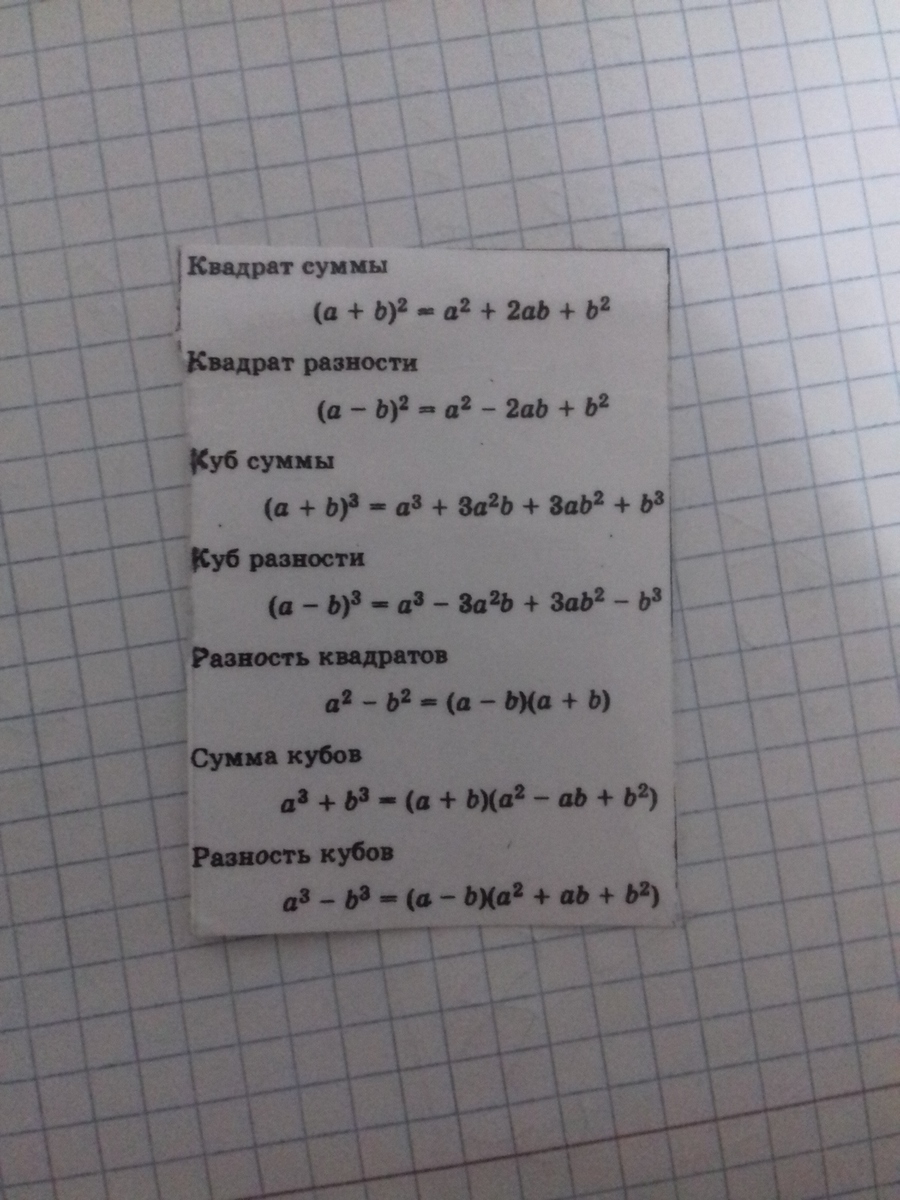 Квадрат суммы
(a + b)² = a² + 2ab + b²
Квадрат разности
(a − b)² = a² − 2ab + b²
Куб суммы
(a + b)³ = a³ + 3a²b + 3ab² + b³
Куб разности
(a − b)³ = a³ − 3a²b + 3ab² − b³
Разность квадратов
a² − b² = (a − b)(a + b)
Сумма кубов
a³ + b³ = (a + b)(a² − ab + b²)
Разность кубов
a³ − b³ = (a − b)(a² + ab + b²)